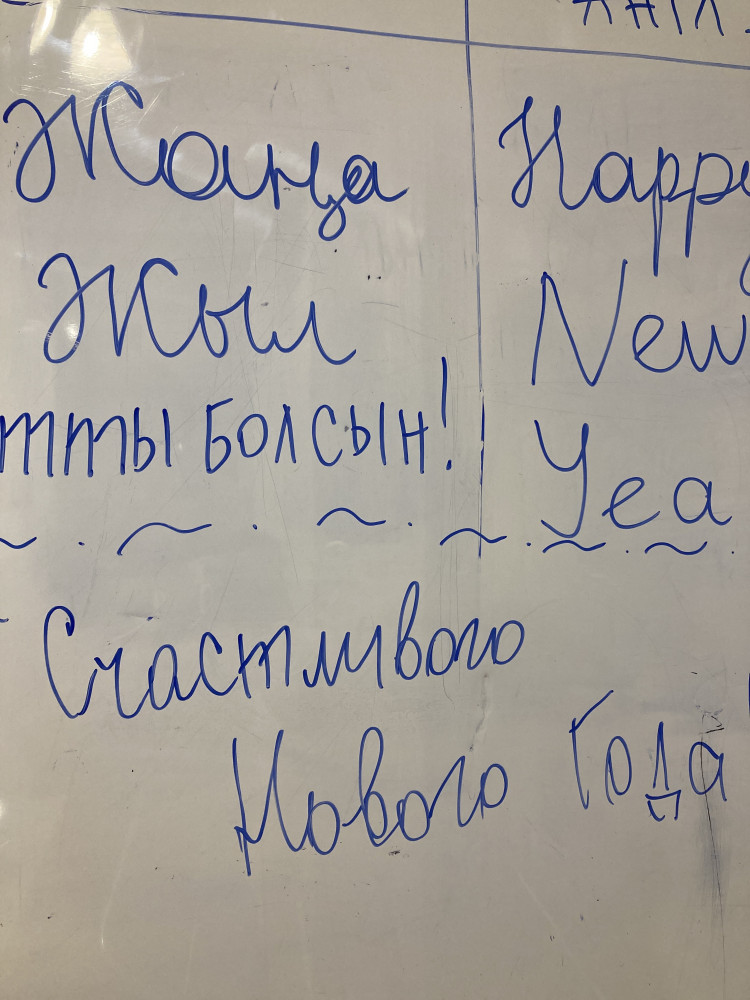 Жаңа
Жыл
тты болсын!
Happy
New
Yea
Счастливого
Нового Года